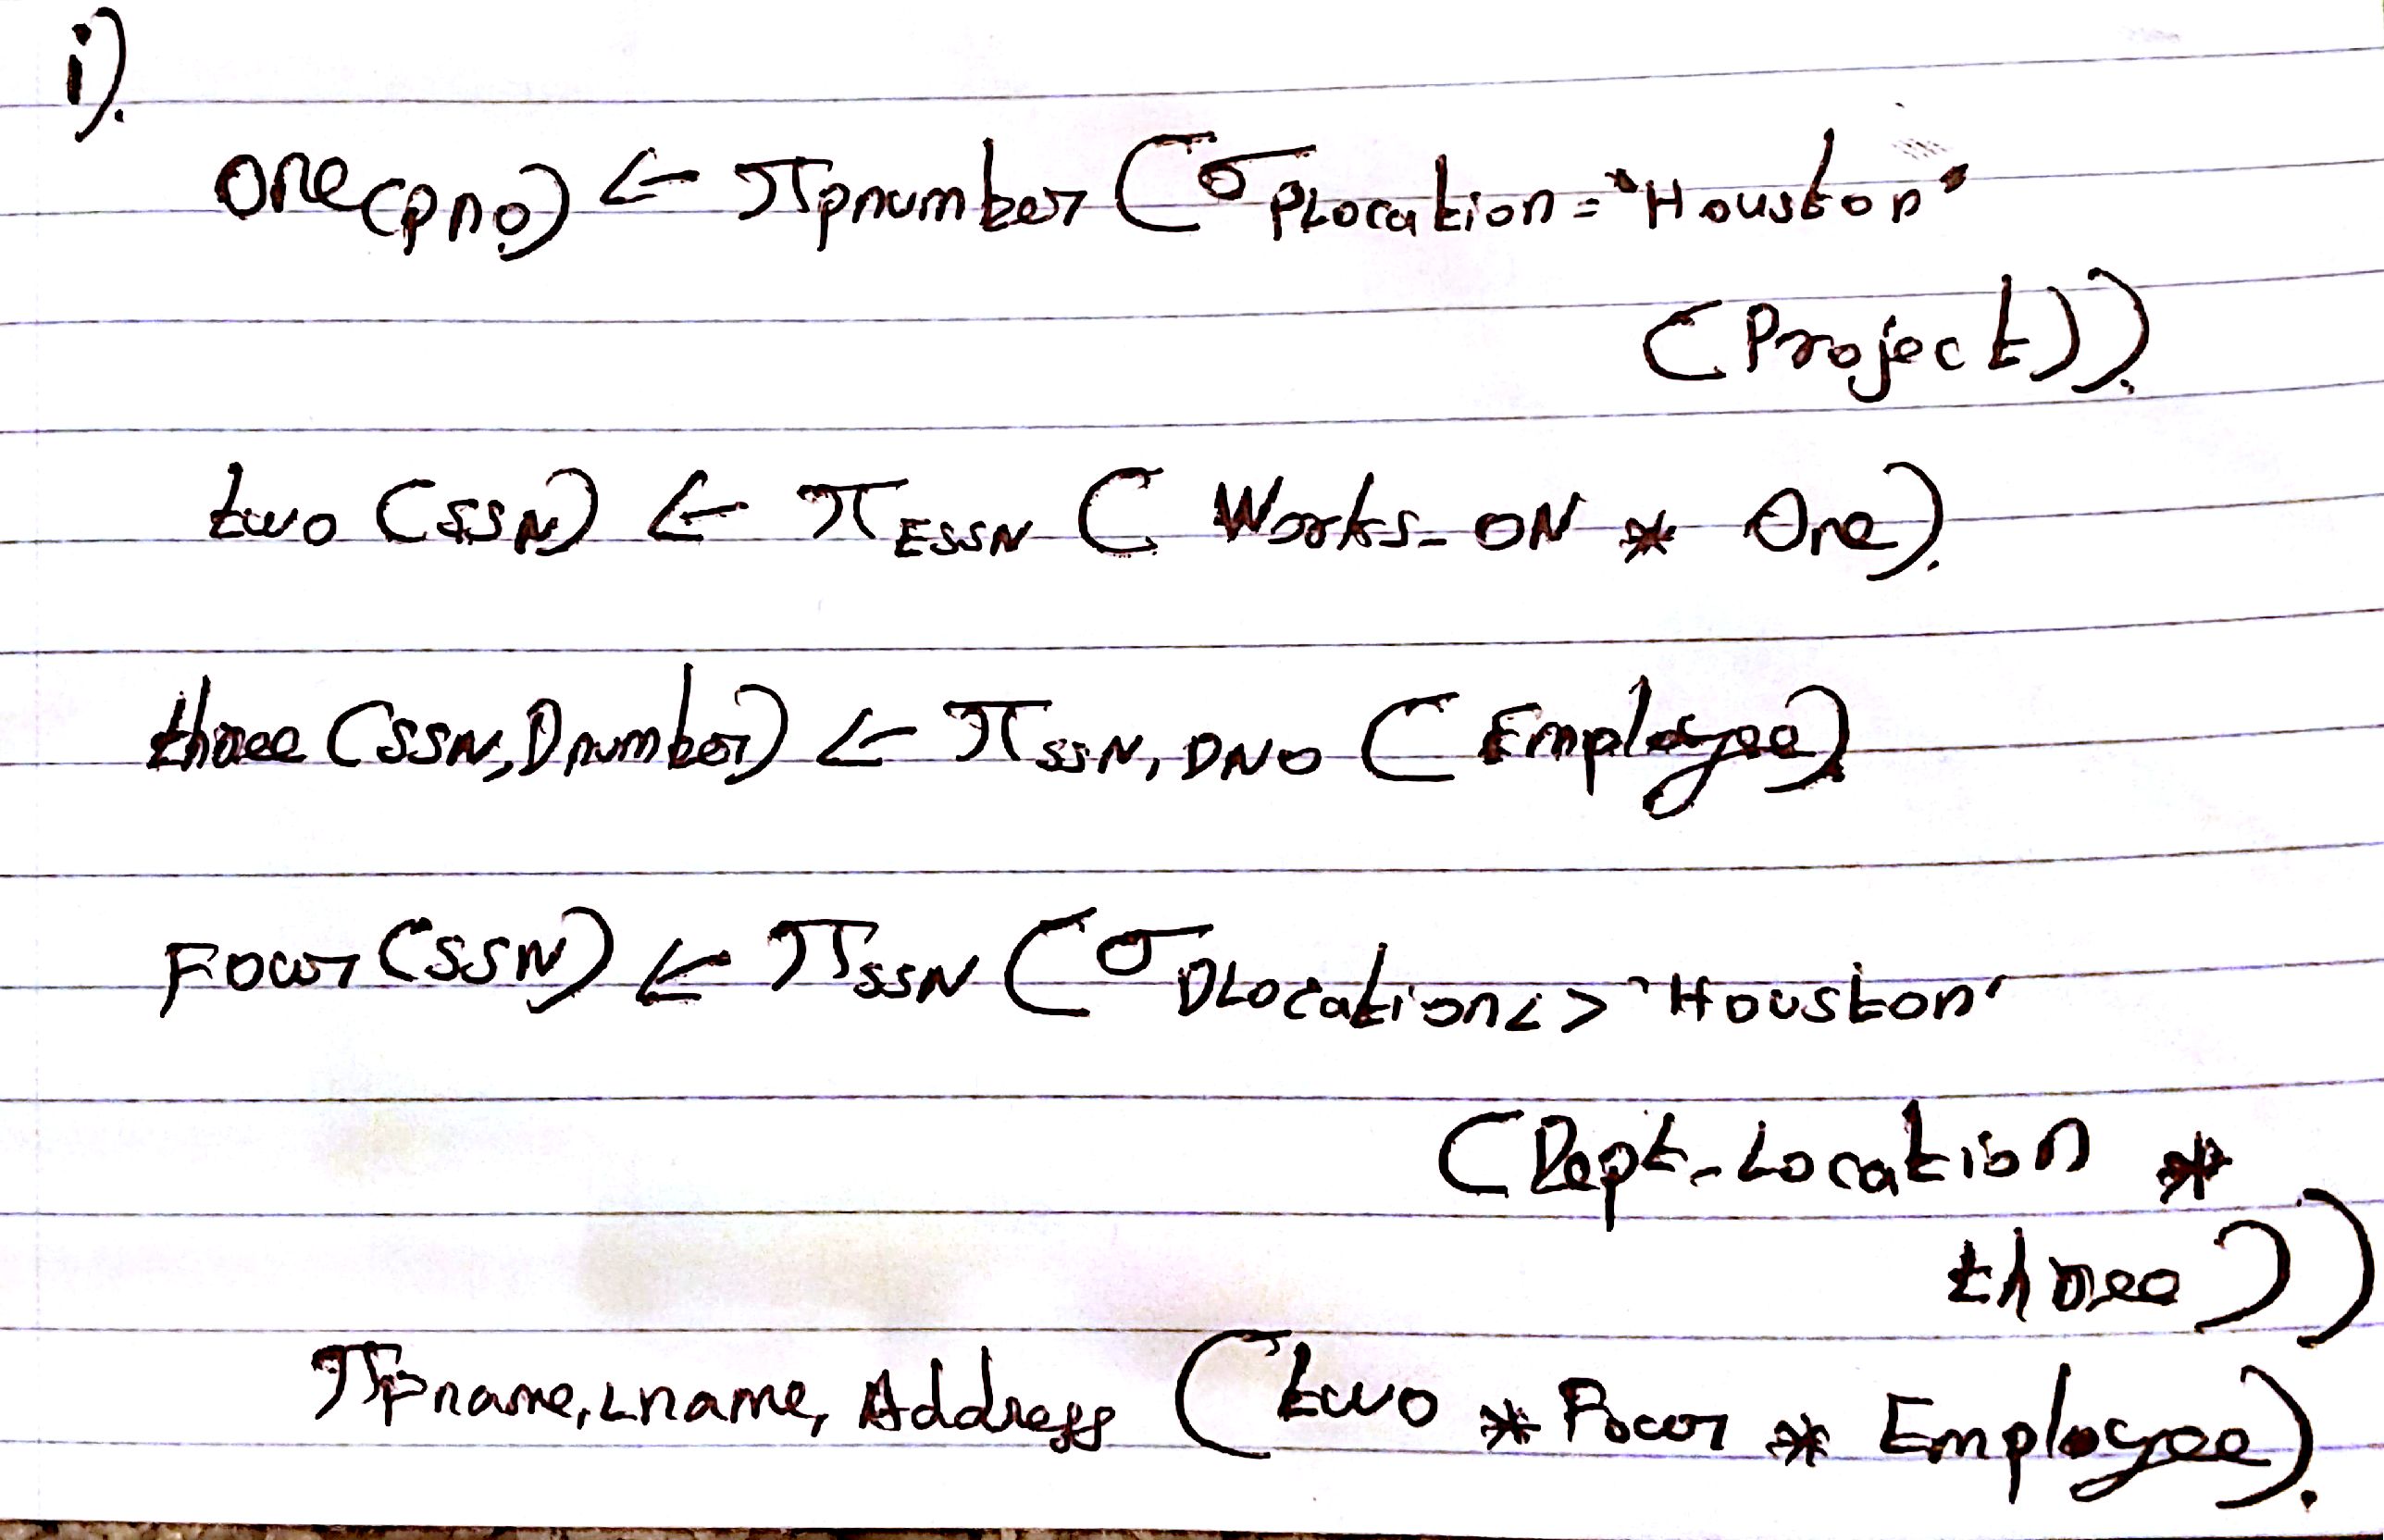 i).
One(pno) ← πpnumber (σPLocation = 'Houston'
(Project)).
two (SSN) ← πESSN ( Works_ON * One).
three (SSN, Dnumber) ← πSSN, DNO (Employee)
Four (SSN) ← πSSN (σDLocation<> 'Houston'
(Dept_Location *
three))
πFname, Lname, Address (two * Four * Employee).